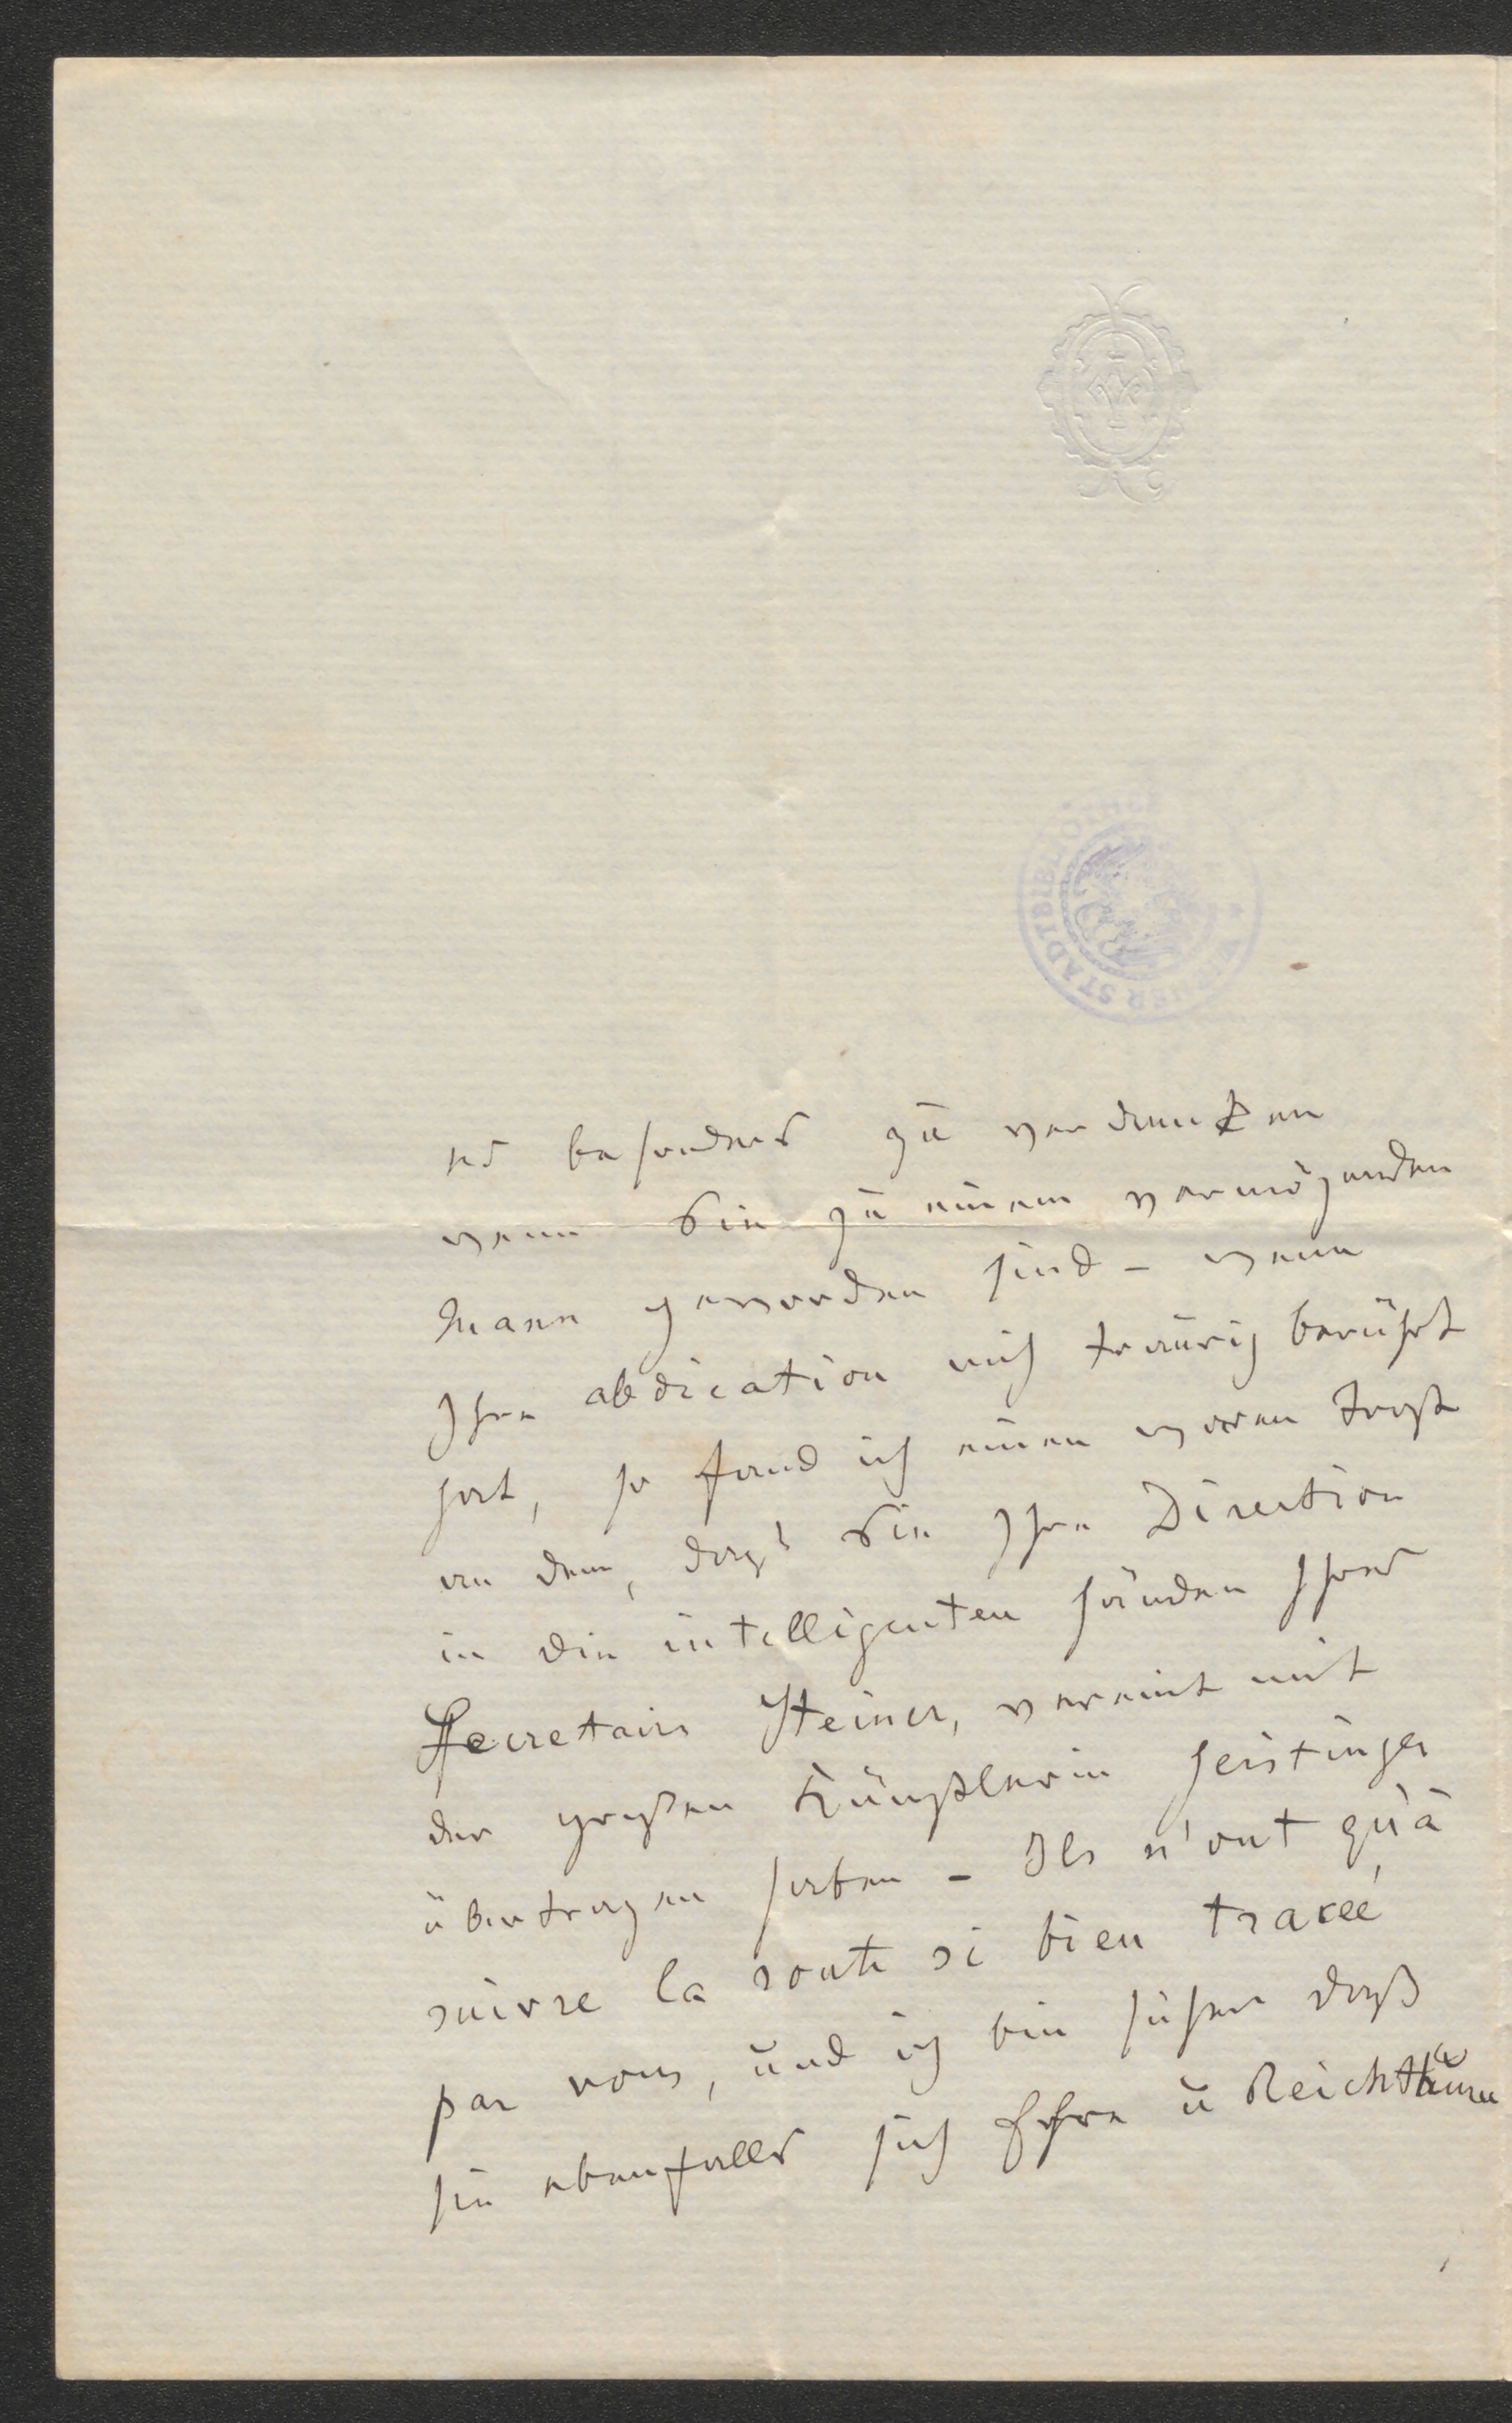 WIENER STADTBIBLIOTHEK
es besonders zu verdanken
wenn Sie zu einem vermögenden
Mann geworden sind - wenn
Ihre abdication mich traurig berührt
hat, so fand ich einen waren Trost
an dem, daß Sie Ihre Direction
in die intelligenten Händen Ihres
Secretairs Steiner, vereint mit
der großen Künstlerin Geistinger
übertragen haben - Ils n'ont qu'à
suivre la route si bien tracée
par vous, und ich bin sicher daß
sie ebenfalls sich Ehre u Reichthum